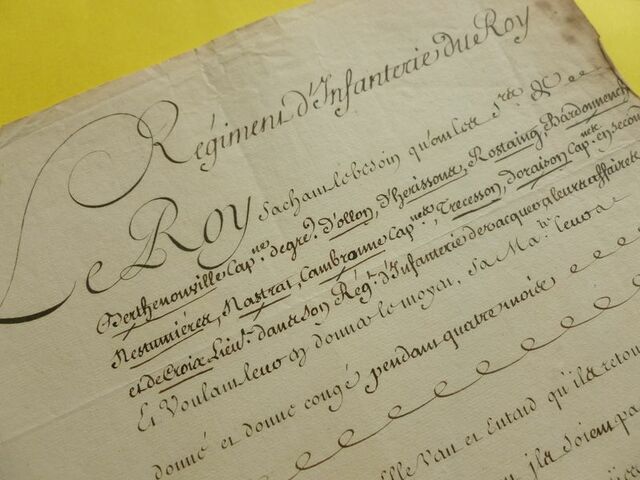 Régiment d'Infanterie du Roy
Le Roy sachant le besoin qu'ont les Srs. de
Berthenonville Capne. de gred. d'ollon, d'hérissons, Rostaing, Bardonnenche
Nestumières, Nastrat, Cambronne Capnes, Trecesson, doraison Capne. en second
et de Croix Lieut. dans son Régt. d'Infanterie de vacquer a leurs affaires
Et Voulant leur en donner le moyen, sa Maté. leur a
donné et donne congé pendant quatre mois
qu'ils
ils soient pa